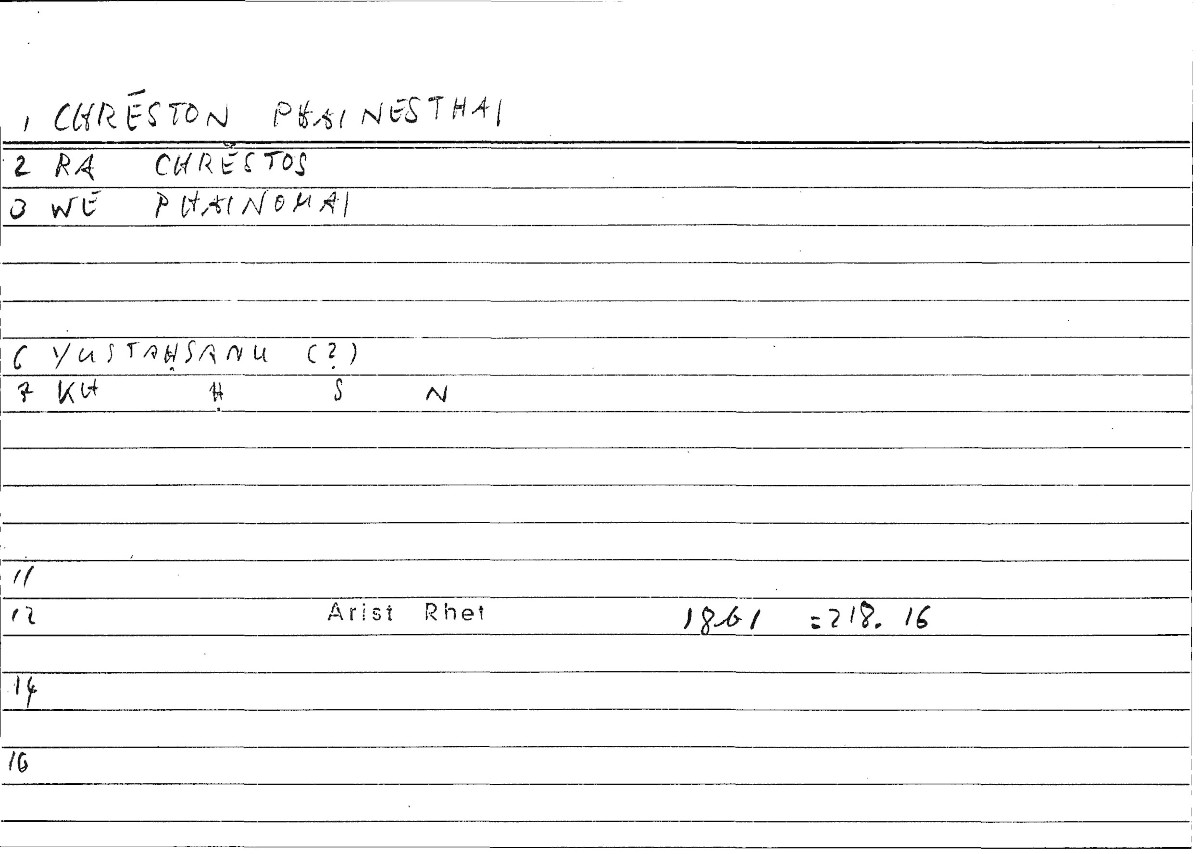 1 CHRĒSTON PHAINESTHAI
2 RA CHRĒSTOS
3 WE PHAINOMAI
6 YUSTAḤSANU (?)
7 KH Ḥ S N
11
12 Arist Rhet 1861 =218.16
14
16